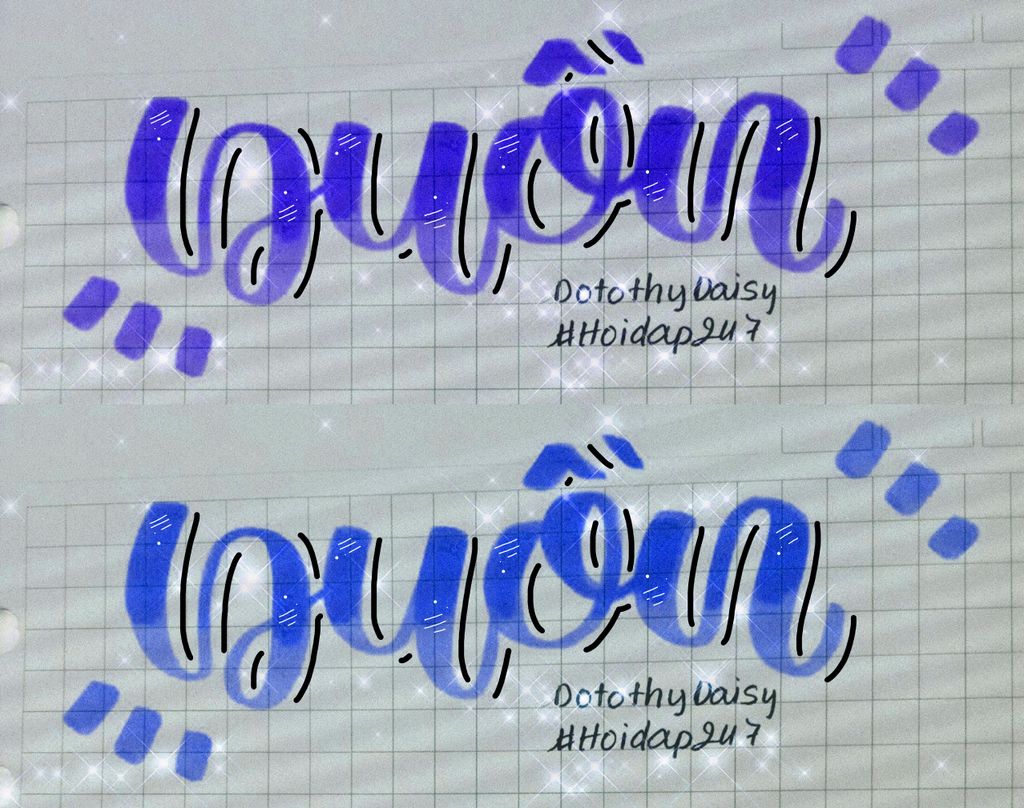 buồn
DotothyDaisy
#Hoidap247
buồn
DotothyDaisy
#Hoidap247